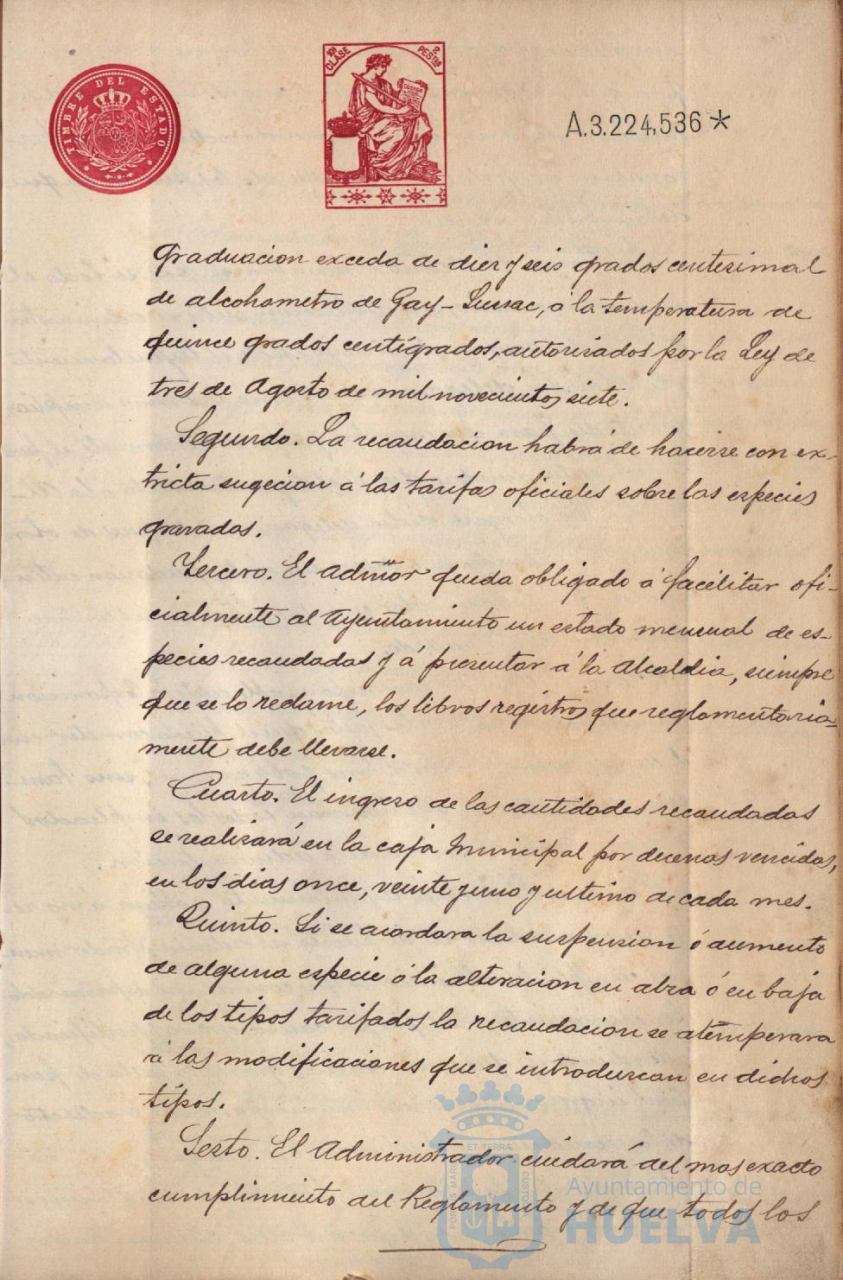 TIMBRE DEL ESTADO
10ª CLASE 2 PESTAS
A.3.224,536*
graduacion exceda de diez y seis grados centesimal
de alcohometro de Gay-Lussac, á la temperatura de
quince grados centigrados, autorizados por la Ley de
tres de Agosto de mil novecientos siete.
Segundo. La recaudacion habrá de hacerse con ex-
tricta sugecion á las tarifas oficiales sobre las especies
gravadas.
Tercero. El admor queda obligado á facilitar ofi-
cialmente al Ayuntamiento un estado mensual de es-
pecies recaudadas y á presentar á la Alcaldia, siempre
que se lo reclame, los libros registros que reglamentaria-
mente debe llevarse.
Cuarto. El ingreso de las cantidades recaudadas
se realizará en la caja Municipal por decenas vencidas,
en los dias once, veinte y uno y ultimo de cada mes.
Quinto. Si se acordara la suspension ó aumento
de alguna especie ó la alteracion en alza ó en baja
de los tipos tarifados la recaudacion se atemperara
á las modificaciones que se introduzcan en dichos
tipos.
Sesto. El Administrador cuidará del mas exacto
cumplimiento del Reglamento y de que todos los
Ayuntamiento de
HUELVA